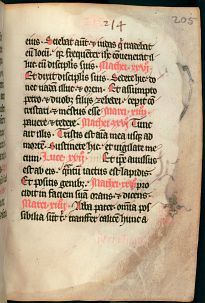 214
205
eius. Sciebat aut et iudas q tradebat
eu locu. qr frequenter ihc conuenerat il
luc cu discipulis suis. Mathei xxvi
Et dixit discipulis suis. Sedete hic do
nec uadam illuc et orem. Et assumpto
petro et duobus filiis zebedei. cepit co
tristari et mestus esse. Marci xiiii
pauere et tedere. Mathei xxvi Tunc
ait illis. Tristis est aia mea usq ad
morte. Sustinete hic. et uigilate me
cum. Luce xxii. Et ipe auulsus
est ab eis. qntu iactus est lapidis.
Et positis genib. Mathei xxvi pro
cidit in faciem suam orans et dicens.
Marci xiiii. Abba pater omia pos
sibilia sut t. transfer calicem hunc a